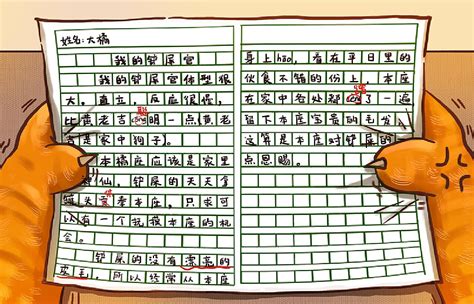 姓名:大橘
我的铲屎官
我的铲屎官体型很
大,直立,反应很慢,
比黄老吉cōng明一点(黄老
吉是家中狗子)。
本橘座应该是家里
的神仙,铲屎的天天拿
罐头贡奉本座,只求可
以有一个抚摸本座的机
会。
铲屎的没有漂亮的
皮毛,所以经常从本座
身上hāo,看在平日里的
伙食不错的份上,本座
在家中各处都了一遍
留下本座宝贵的毛发,
这算是本座对铲屎的一
点恩赐。